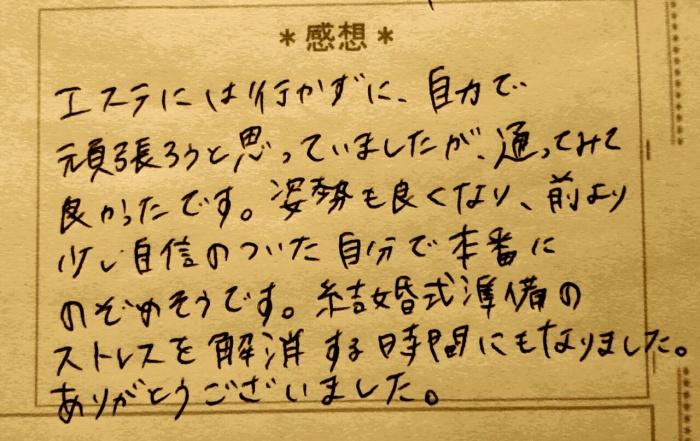 ＊感想＊
エステには行かずに、自力で
頑張ろうと思っていましたが、通ってみて
良かったです。姿勢も良くなり、前より
少し自信のついた自分で本番に
のぞめそうです。結婚式準備の
ストレスを解消する時間にもなりました。
ありがとうございました。